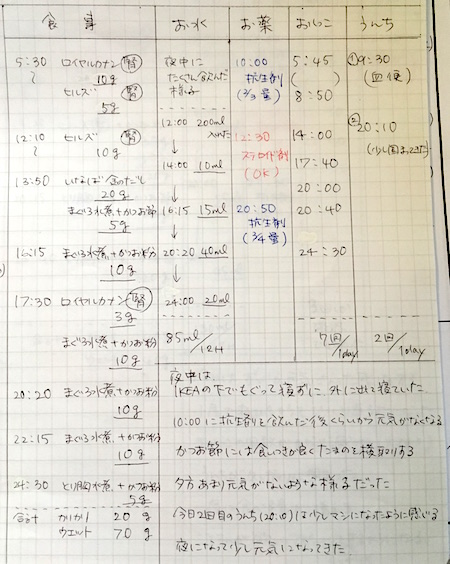 食事
おっ水
お薬
おしっこ
うんち
5:30 ロイヤルカナン 腎
〜 10g
ヒルズ 腎
5g
12:10 ヒルズ 腎
〜 10g
13:50 いなば 金のだし
20g
まぐろ水煮+かつお節
5g
16:15 まぐろ水煮+かつお粉
10g
17:30 ロイヤルカナン 腎
3g
まぐろ水煮+かつお粉
10g
20:20 まぐろ水煮+かつお粉
10g
22:15 まぐろ水煮+かつお粉
10g
24:30 とり胸水煮+かつお粉
5g
合計 かりかり 20g
ウエット 70g
夜中に
たくさん飲んだ
様子
12:00 200ml
入れた
↓
14:00 10ml
↓
16:15 15ml
↓
20:20 40ml
↓
24:00 20ml
85ml/12H
10:00
抗生剤
(2/3量)
12:30
ステロイド剤
(OK)
20:50
抗生剤
(3/4量)
5:45
( )
8:50
14:00
17:40
20:00
20:40
24:30
7回/1day
①9:30
(血便)
②20:10
(少し固まってきた)
2回/1day
夜中は、
IKEAの下でもぐって寝ずに、外に出て寝ていた
10:00に抗生剤を飲んだ後くらいから元気がなくなる
かつお節には食いつきが良くたまのを横取りする
夕方あまり元気がないような様子だった
今日2回目のうんち(20:10)は少しマシになったように感じる
夜になって少し元気になってきた